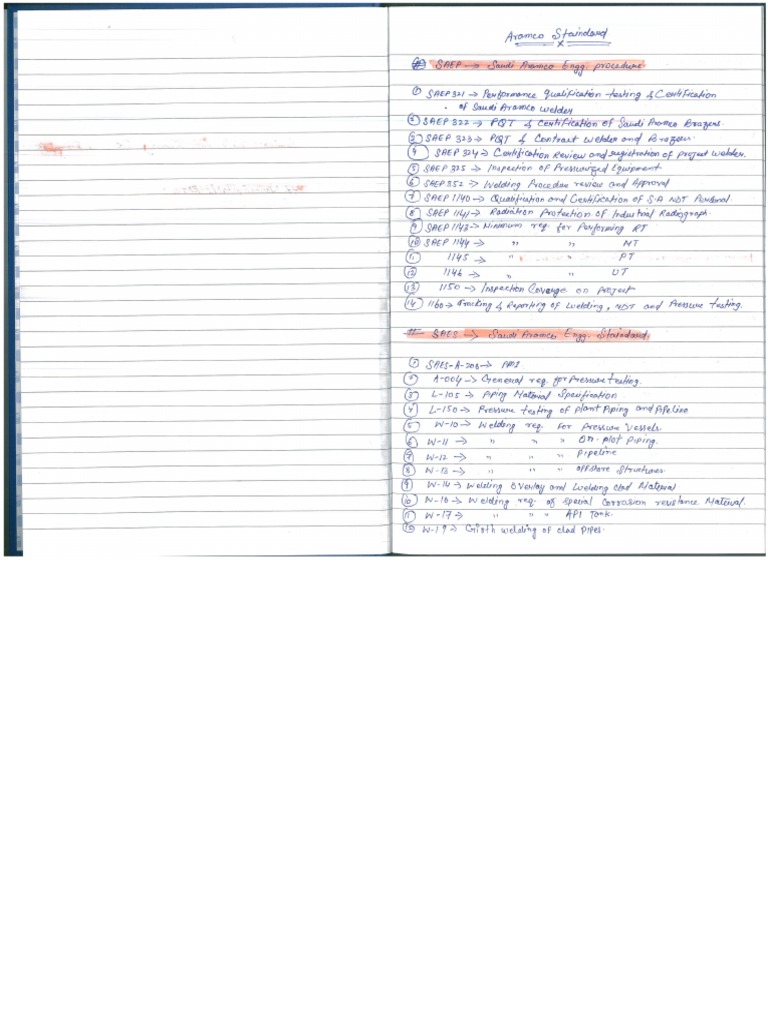 Aramco Standard
x
# SAEP → Saudi Aramco Engg. procedure.
1 SAEP 321 → Performance Qualification testing & Certification
of Saudi Aramco welder
2 SAEP 322 → PQT & Certification of Saudi Aramco Brazers.
3 SAEP 323 → PQT & Contract Welder and Brazers.
4 SAEP 324 → Certification Review and registration of project welder.
5 SAEP 325 → Inspection of Pressurized Equipment
6 SAEP 352 → Welding Procedure review and Approval
7 SAEP 1140 → Qualification and Certification of S.A NDT Personal
8 SAEP 1141 → Radiation Protection of Industrial Radiograph.
9 SAEP 1143 → Minimum req. for Performing RT
10 SAEP 1144 → " " MT
11 1145 → " " PT
12 1146 → " " UT
13 1150 → Inspection Coverage on Project
14 1160 → Tracking & Reporting of Welding, NDT and Pressure testing.
# SAES → Saudi Aramco Engg. Standard.
1 SAES-A-206 → PMI
2 A-004 → General req. for Pressure testing.
3 L-105 → Piping Material Specification
4 L-150 → Pressure testing of plant Piping and Pipeline
5 W-10 → Welding req. for Pressure Vessels.
6 W-11 → " " " On-plot piping.
7 W-12 → " " " Pipeline
8 W-13 → " " " offshore Structures.
9 W-14 → Welding Overlay and Welding clad Material
10 W-16 → Welding req. of Special Corrosion resistance Material.
11 W-17 → " " " API Tank.
12 W-19 → Girth welding of clad pipes.